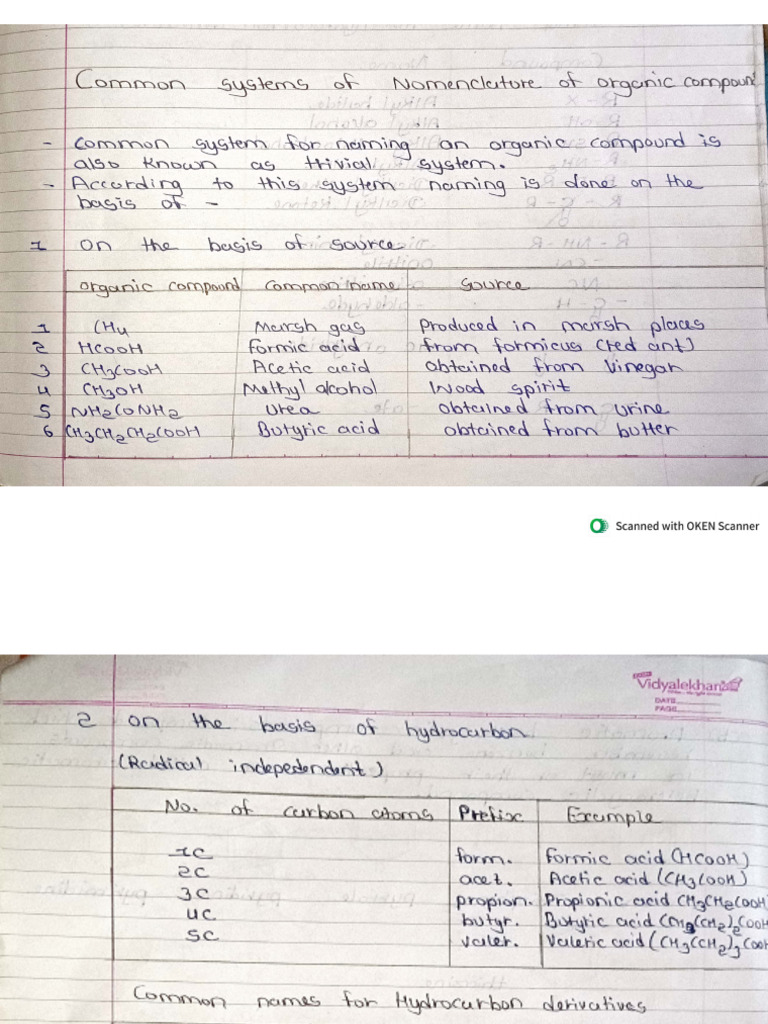 Common systems of Nomenclature of organic compound
- Common system for naming an organic compound is
also known as trivial system.
- According to this system naming is done on the
basis of -
1 on the basis of source
organic compound Common name source
1 CH4 Marsh gas Produced in marsh places
2 HCOOH formic acid from formicus (red ant)
3 CH3COOH Acetic acid obtained from vinegar
4 CH3OH Methyl alcohol Wood spirit
5 NH2CONH2 Urea obtained from urine
6 CH3CH2CH2COOH Butyric acid obtained from butter
Scanned with OKEN Scanner
Vidyalekhan
DATE
PAGE
2 on the basis of hydrocarbon
(Radical independent)
No. of carbon atoms Prefix Example
1C form. Formic acid (HCOOH)
2C acet. Acetic acid (CH3COOH)
3C propion. Propionic acid CH3CH2COOH
4C butyr. Butyric acid CH3(CH2)2COOH
5C valer. Valeric acid (CH3(CH2)3COOH
Common names for Hydrocarbon derivatives